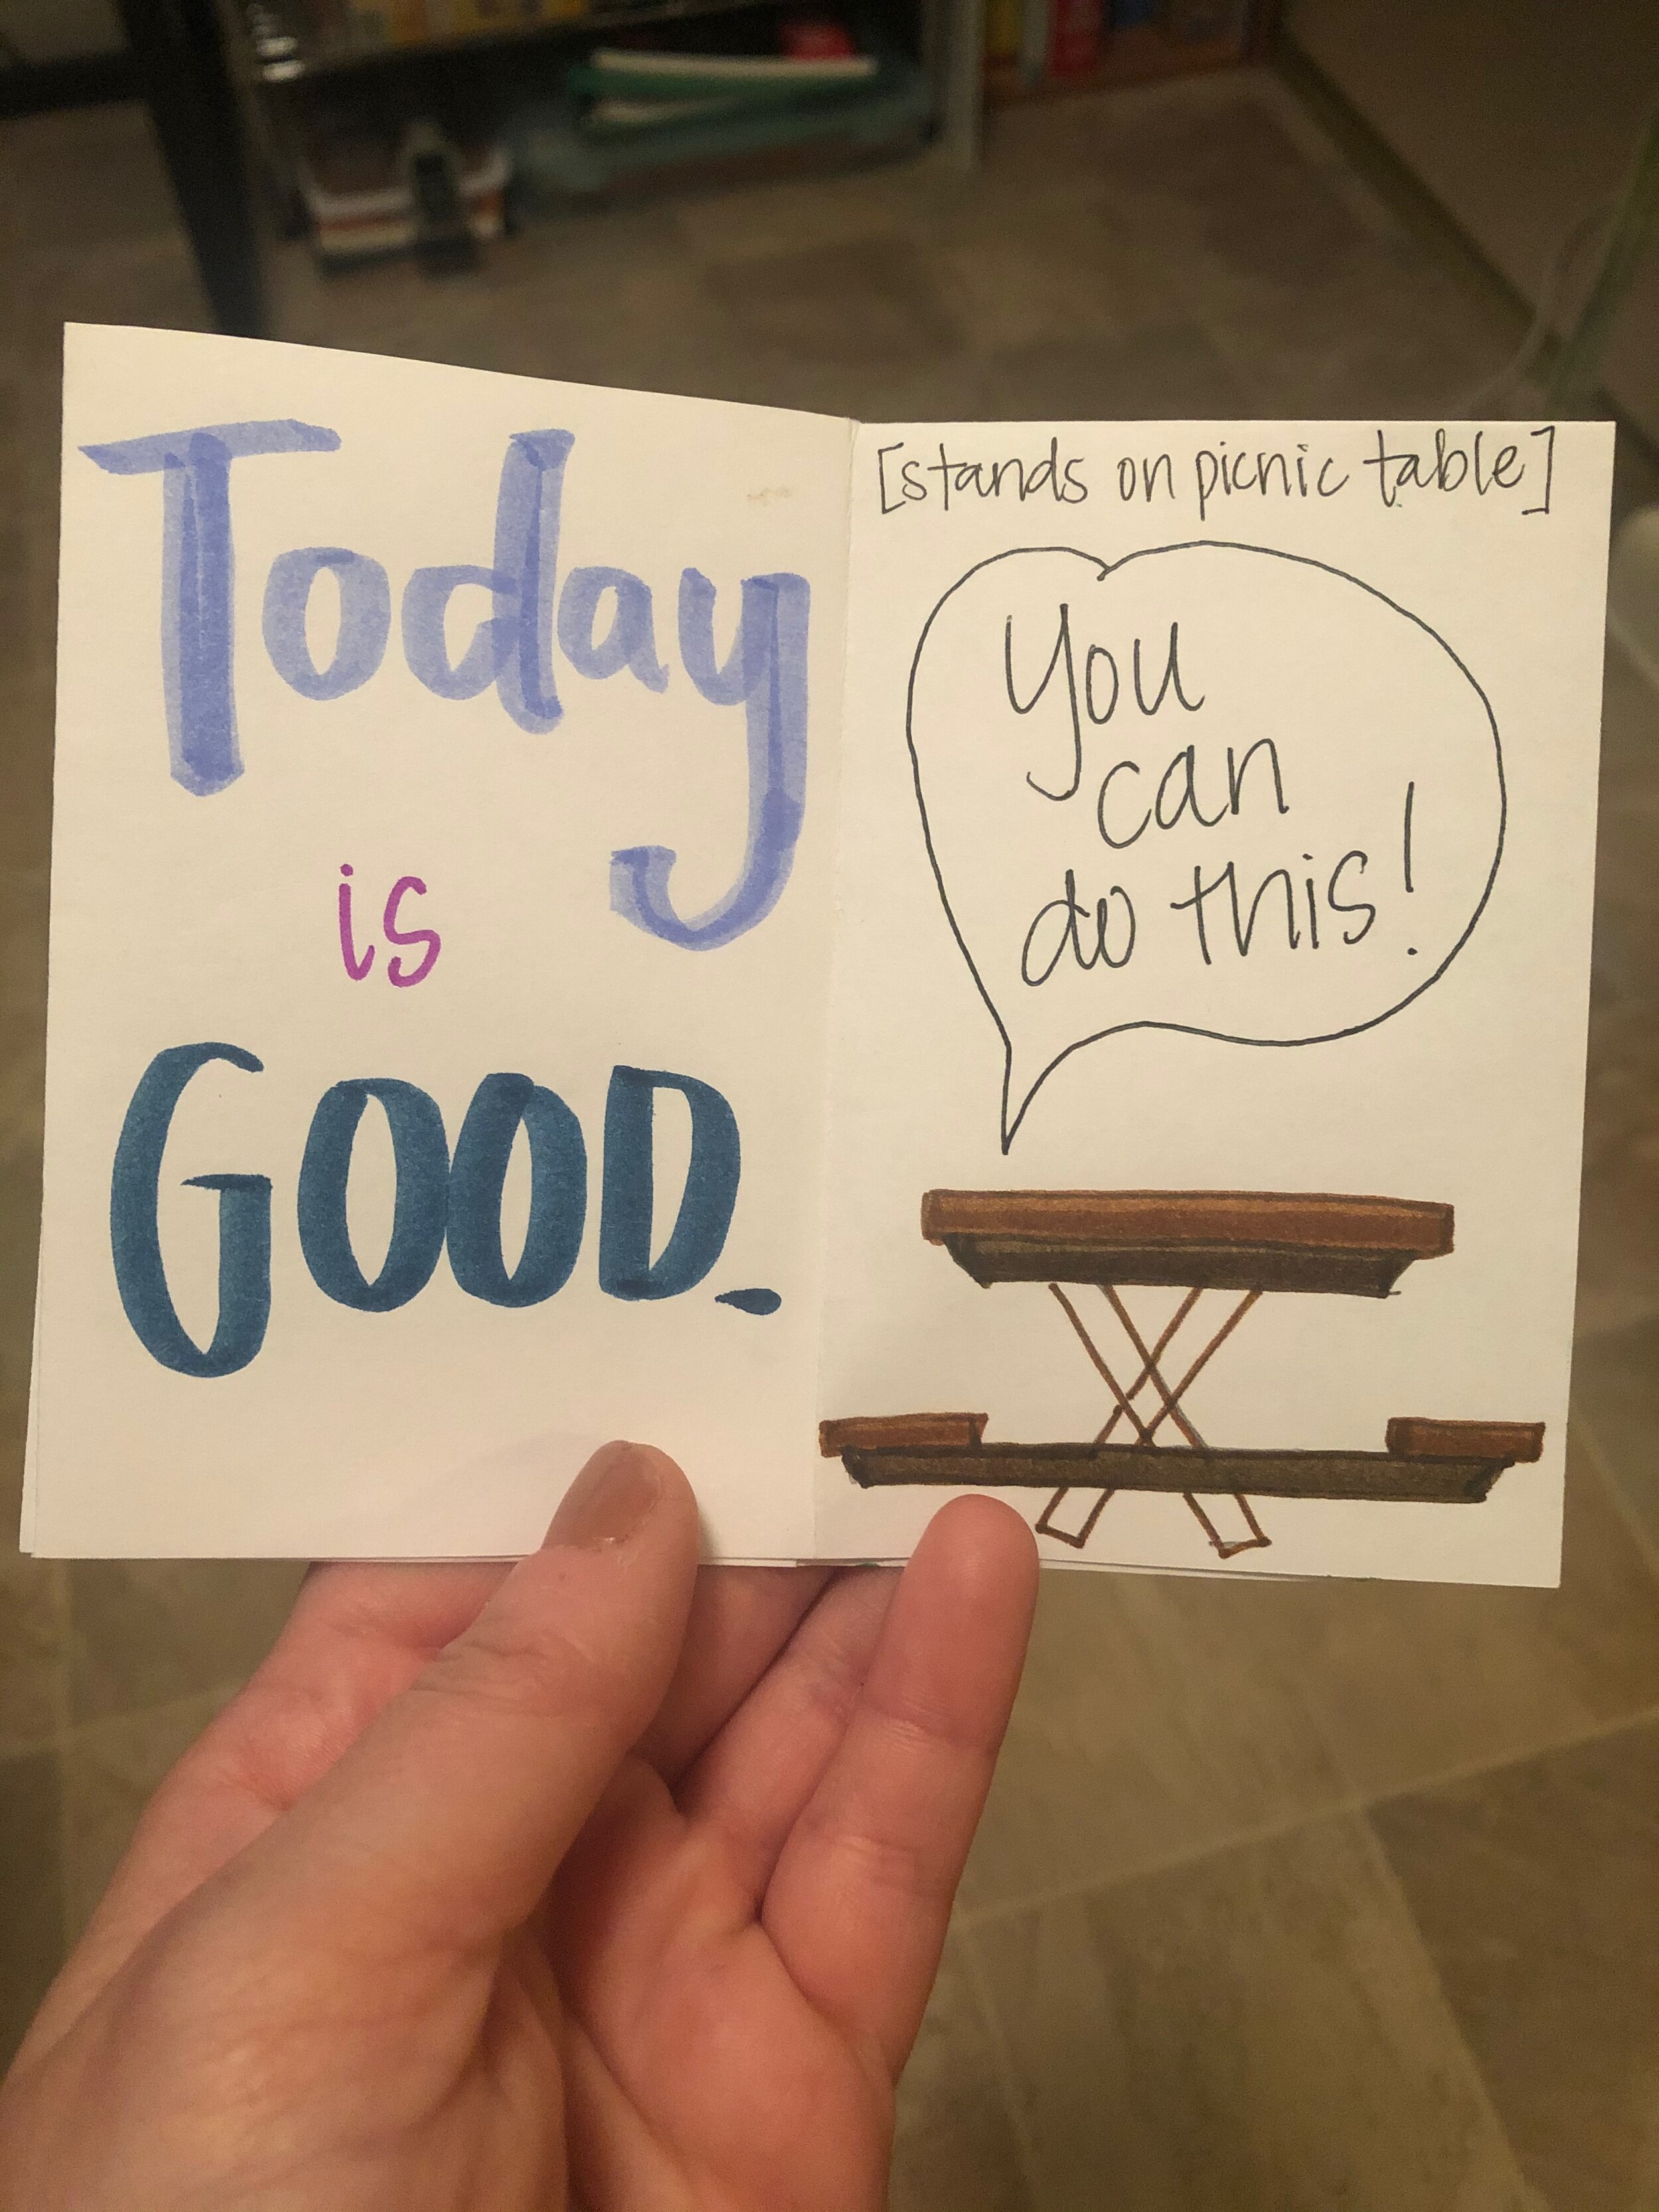 Today
is
GOOD.
[stands on picnic table]
You
can
do this!